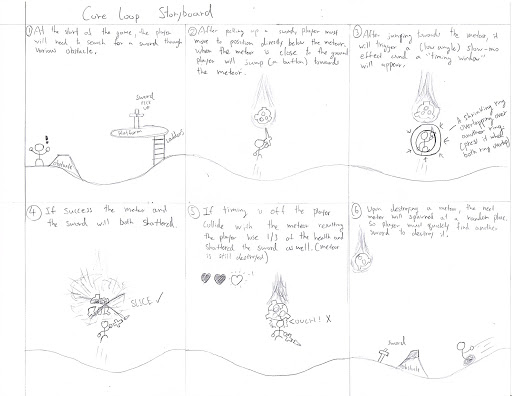 Core Loop Storyboard
① At the start of the game, the player
will need to search for a sword through
various obstacle.
sword
pick
up
Platform
Ladders
Obstacle
② After picking up a sword, player must
move to position directly below the meteor.
when the meteor is close to the ground
player will jump (a button) towards
the meteor.
③ After jumping towards the meteor, it
will trigger a (low angle) slow-mo
effect and a "timing window"
will appear.
A shrinking ring
overlapping over
another ring.
(press it when
both ring overlap)
④ If success the meteor and
the sword will both shattered.
SLICE ✓
⑤ If timing is off the player
collide with the meteor resulting
the player lose 1/3 of the health and
shattered the sword as well. (meteor
is still destroyed)
OUCH! X
⑥ Upon destroying a meteor, the next
meteor will spawned at a random place.
So player must quickly find another
sword to destroy it.
sword
obstacle